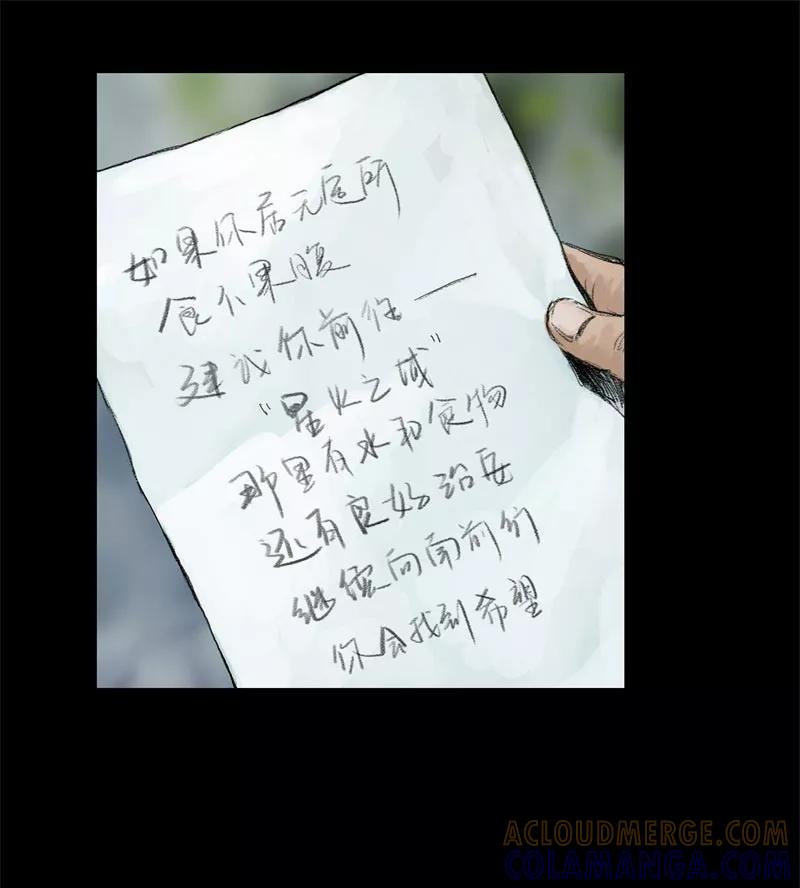 如果你居无定所
食不果腹
建议你前往——
"星火之域"
那里有水和食物
还有良好治安
继续向南前行
你会找到希望
ACLOUDMERGE.COM
COLAMANGA.COM